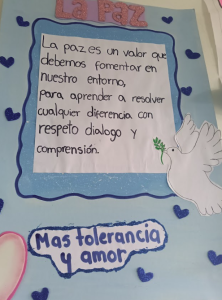 La Paz
La paz es un valor que
debemos fomentar en
nuestro entorno,
para aprender a resolver
cualquier diferencia con
respeto dialogo y
comprensión.
Mas tolerancia
y amor